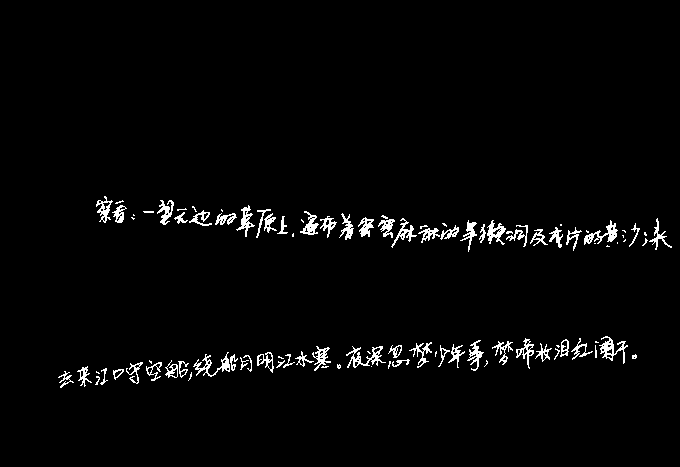 察看:一望无边的草原上,遍布着密密麻麻的旱獭洞及成片的黄沙漠
去来江口守空船,绕船月明江水寒。夜深忽梦少年事,梦啼妆泪红阑干。